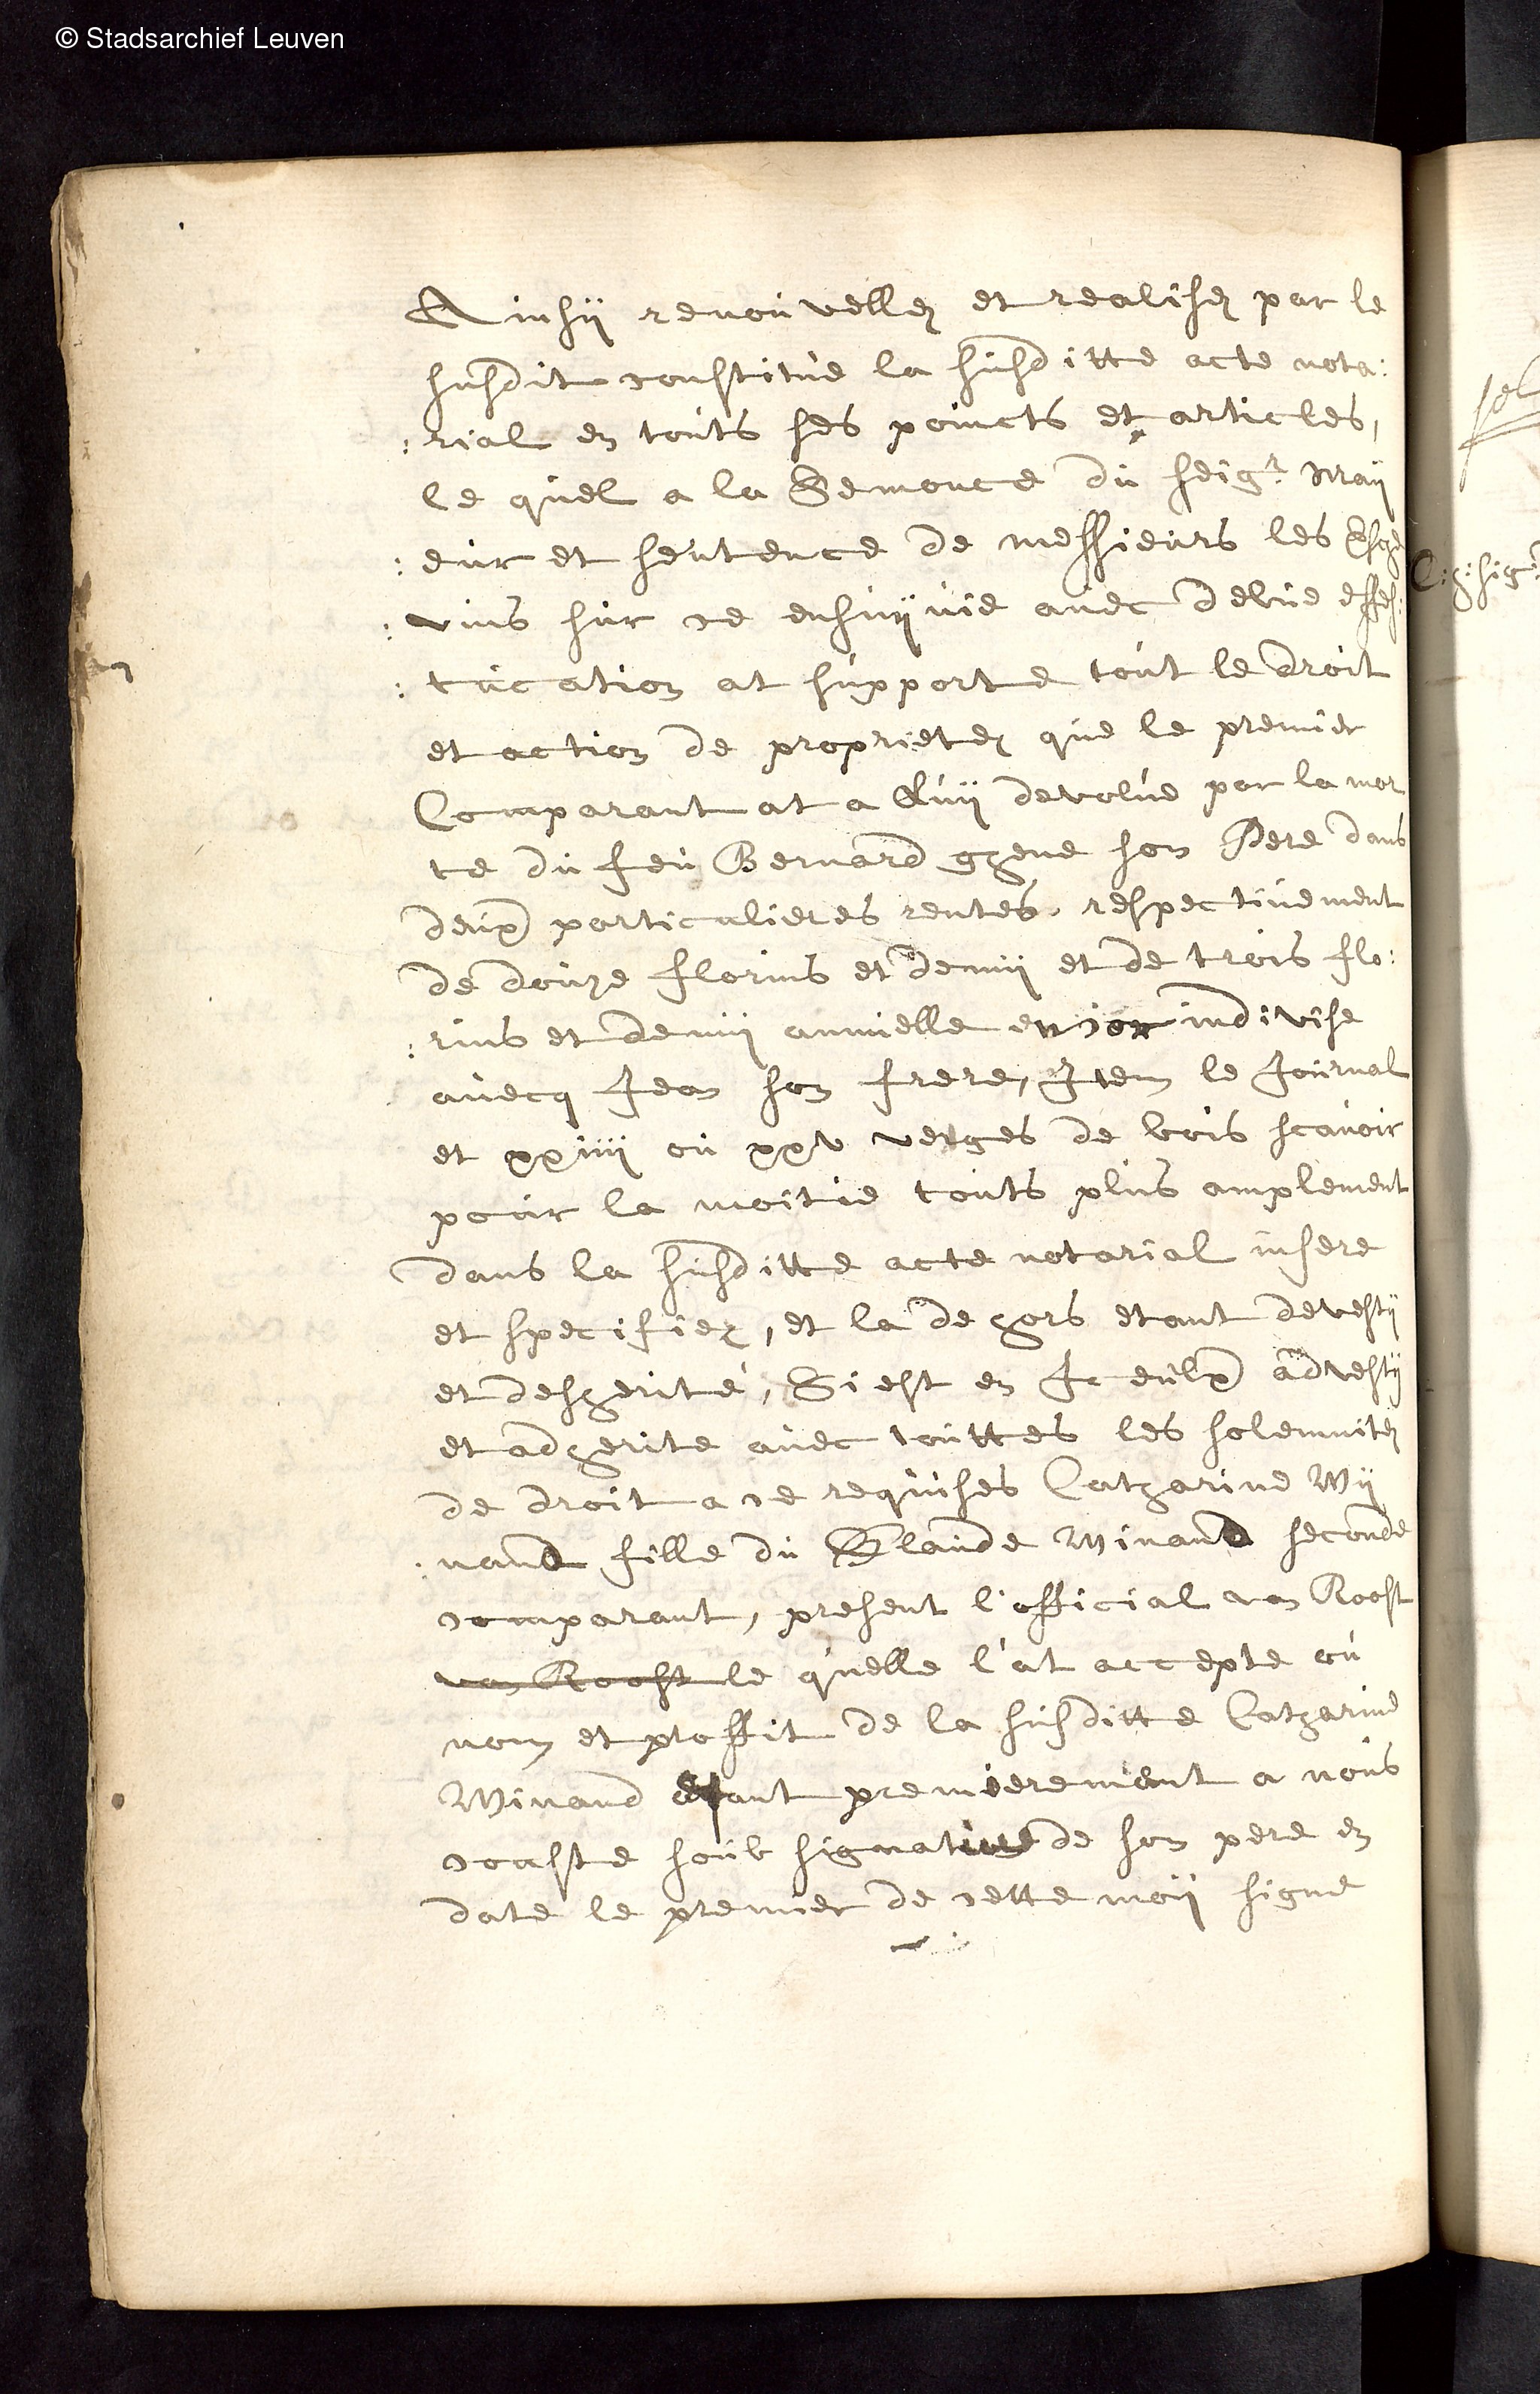 © Stadsarchief Leuven
Ainsÿ renouvellez et realisez par le
susdit constitué la susditte acte nota:
:rial en touts ses poincts et articles,
le quel a la Semonce du seigr. Maÿ
:eur et sentence de messieurs les Esche
:vins sur ce ensuÿvie avec deüe effes:
:tucation at supporte tout le droit
et action de proprietez que le premier
Comparant at a luÿ devolue par la mor
te du feu Bernard son Pere dans
deux particulieres rentes, respectivement
de douze florins et demÿ et de trois flo:
:rins et demÿ annuelle encor indivise
avecq Jean son frere, Item le Journal
et xxiiij ou xxv verges de bois scavoir
pour la moitié touts plus amplement
dans la susditte acte notarial insere
et specifiez, et la dehors etant devestÿ
et desherité, Si est en Iceulx advestÿ
et adherite avec touttes les solemnitez
de droit a ce requises Catharine Wÿ
:nand fille du Glaude Winand seconde
comparant, present l'official van Roost
van Roost le quelle l'at accepte ou
nom et proffit de la susditte Catharine
Winand estant premierement a nous
conste soub signature de son pere en
date le premier de cette moÿ signe